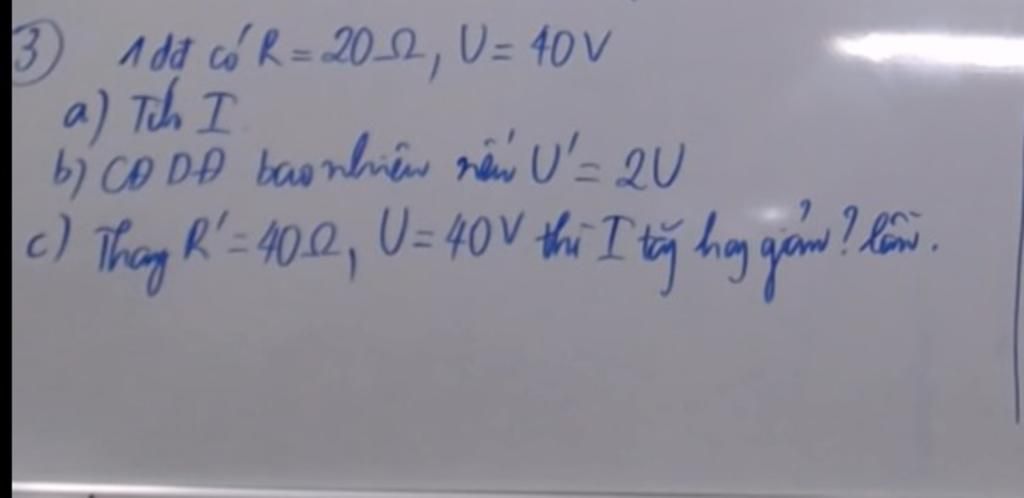 3) 1 dđ có R = 20Ω, U = 40V
a) Tính I
b) CĐDĐ bao nhiêu nếu U' = 2U
c) Thay R' = 40Ω, U = 40V thì I tăg hay giảm ? lần.